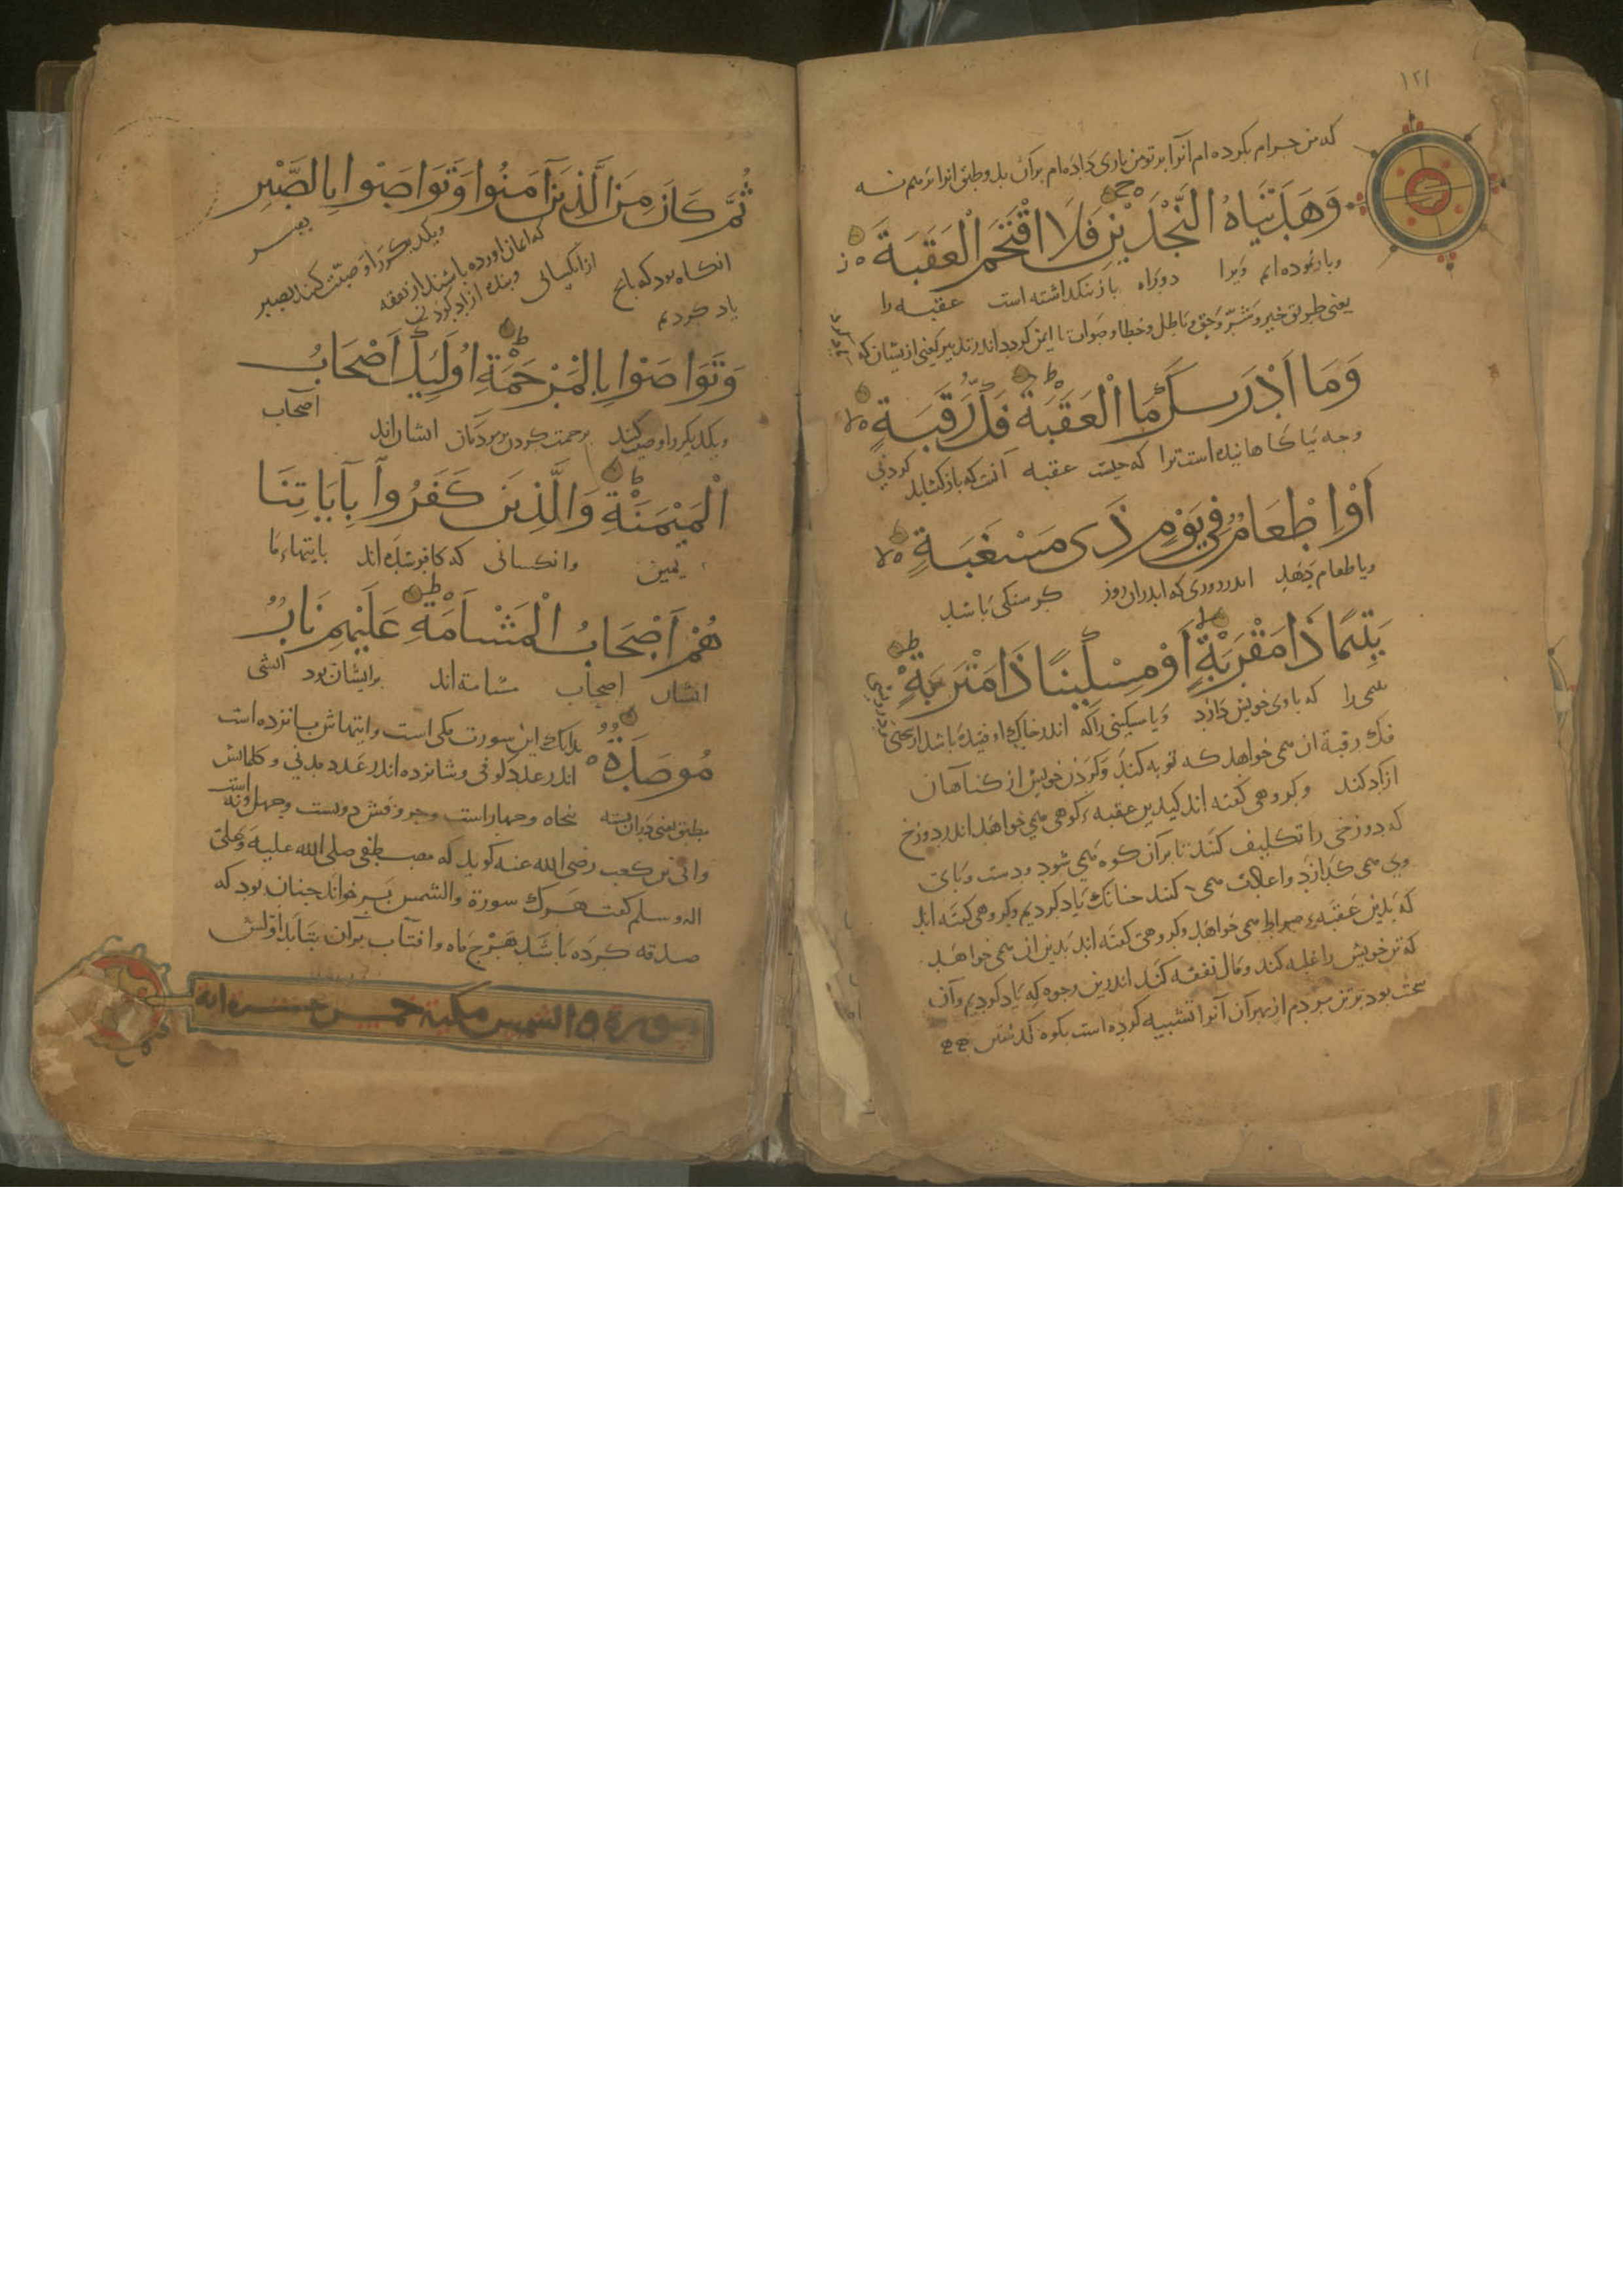 ١٢١
که من حرام بکرده ام آنرا بر تو من یاری داده ام بران بدو طبق
وَهَدَيْنَاهُ النَّجْدَيْنِ فَلَا اقْتَحَمَ الْعَقَبَةَ
وباز نموده ایم ویرا دو راه باز نگذاشته است عقبه را
یعنی طریق خیر و شر و حق و باطل و خطا و صواب تا
وَمَا اَدْرٰىكَ مَا الْعَقَبَةُ فَكُّ رَقَبَةٍ
وچه است ترا که چیست عقبه آنست که باز کشاید کردنی
اَوْ اِطْعَامٌ فِى يَوْمٍ ذِى مَسْغَبَةٍ
ویا طعام دهد اندر روزی که اندران روز کرسنکی باشد
يَتِيمًا ذَا مَقْرَبَةٍ اَوْ مِسْكِينًا ذَا مَتْرَبَةٍ
را که با وی خویشی دارد ویا مسکینی را که اندر خاک افتیده باشد
فک رقبة ان می خواهد که توبه کند وکردن خویش از کناهان
ازاد کند وکروهی کفته اند کبدین عقبه کوهی می خواهد اندر دوزخ
که دوزخی را تکلیف کنند تا بران کوه می شود ودست وپای
وی می کدازد واعادت می کنند چنانک یاد کردیم وکروهی کفته اند
که بدین عقبه صراط می خواهد وکروهی کفته اند بدین ان می خواهد
که تن خویش را غلبه کند ومال نفقه کند اندرین وجوه که یاد کردیم وآن
سخت بود بر تن مردم از بهر آن آنرا تشبیه کرده است بکوه
ثُمَّ كَانَ مِنَ الَّذِينَ آمَنُوا وَتَوَاصَوْا بِالصَّبْرِ
انکاه بود که با این از انکسانی که ایمان اورده باشند ویکدیکر را وصیت کنند بصبر
یاد کردیم وبنده ازاد کردن از نفقه
وَتَوَاصَوْا بِالْمَرْحَمَةِ اُولٰٓئِكَ اَصْحَابُ
ویکدیکر را وصیت کنند برحمت کردن بر مردمان ایشان اند اصحاب
الْمَيْمَنَةِ وَالَّذِينَ كَفَرُوا بِآيَاتِنَا
یمین وانکسانی که کافر شده اند بایتهاء ما
هُمْ اَصْحَابُ الْمَشْاَمَةِ عَلَيْهِمْ نَارٌ
ایشان اصحاب مشامه اند بر ایشان بود اتشی
مُوصَدَةٌ بدانک این سورت مکی است وایتهاش پانزده است
اندر عدد کوفی وشانزده اندر عدد مدنی وکلماتش
مطبق یعنی دران بسته پنجاه وچهار است وحروفش دویست وچهل ونه است
وابی بن کعب رضی الله عنه کوید که مصطفی صلی الله علیه وعلی
اله وسلم کفت هرک سورة والشمس بر خواند چنان بود که
صدقه کرده باشد بهرچ ماه وافتاب بران بتابد
سورة والشمس مكية خمس عشرة اية